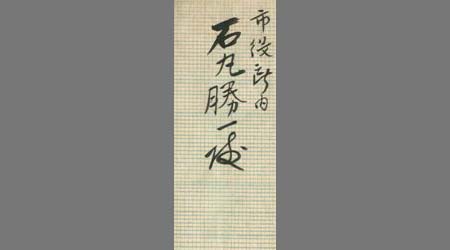 市役所内
石丸勝一様